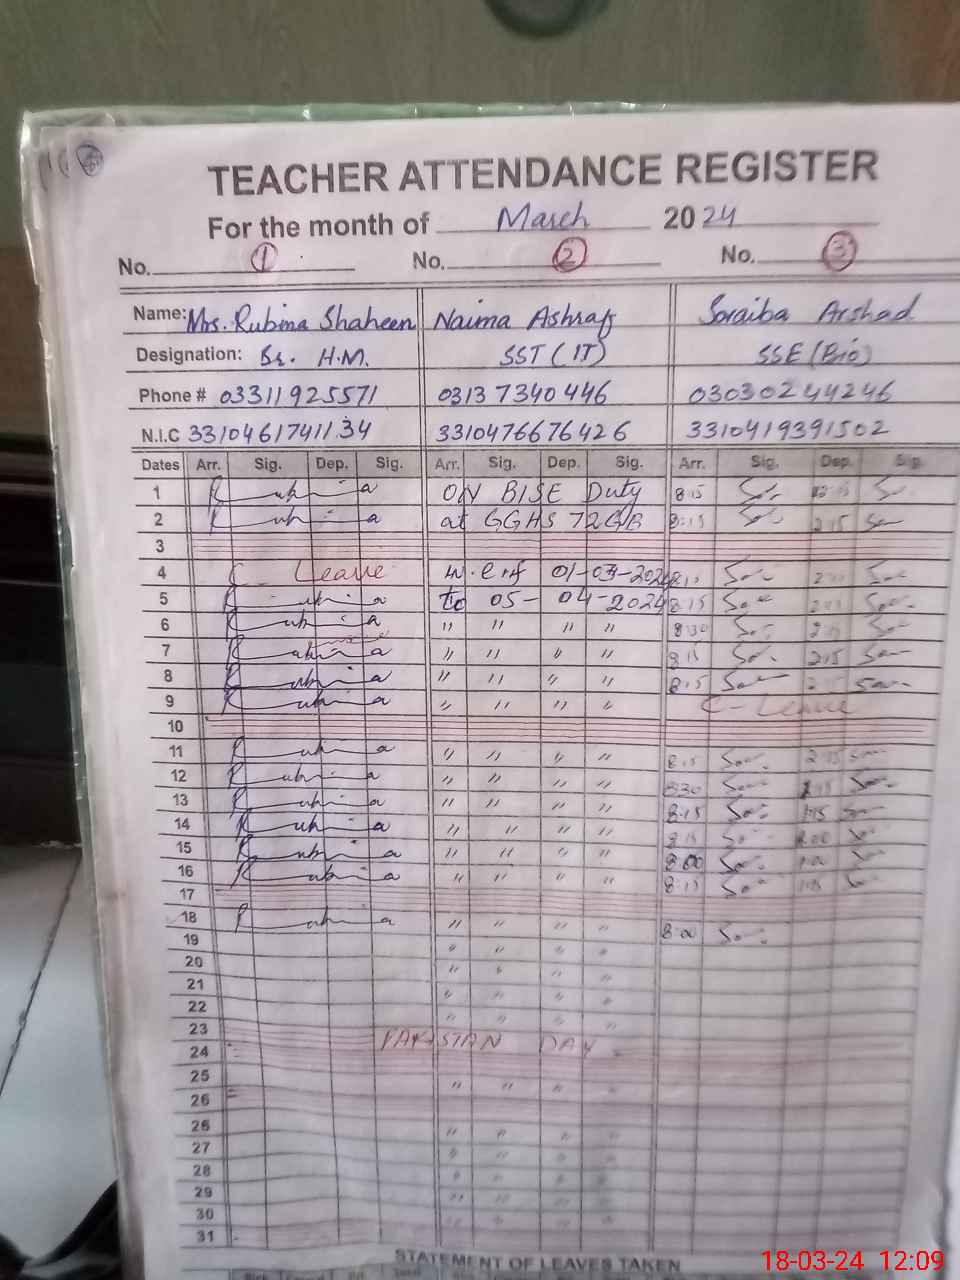 TEACHER ATTENDANCE REGISTER
For the month of March 2024
No. 1 No. 2 No. 3
Name: Mrs. Rubina Shaheen Naima Ashraf Soraiba Arshad
Designation: Sr. H.M. SST (IT) SSE (Bio)
Phone # 03311925571 03137340446 03030244246
N.I.C 3310461741134 3310476676426 3310419391502
Dates Arr. Sig. Dep. Sig. Arr. Sig. Dep. Sig. Arr. Sig. Dep. Sig.
1 Rubina ON BISE Duty 8:15
2 Rubina at GGHS 72 GB 8:15 2:15
3
4 C- Leave w.e.f 01-03-2024
5 Rubina to 05-04-2024 8:15
6 Rubina " " " " 8:30
7 Rubina " " " " 8:15 2:15
8 Rubina " " " " 8:15
9 Rubina " " " " C- Leave
10
11 Rubina " " " " 8:15 2:15
12 Rubina " " " " 8:30
13 Rubina " " " " 8:15
14 Rubina " " " " 8:15
15 Rubina " " " " 8:00
16 Rubina " " " " 8:15
17
18 Rubina " " " " 8:00
19 " " " "
20 " " " "
21 " " " "
22 " " " "
23 PAKISTAN DAY
24
25 " " " "
26
26 " " " "
27 " " " "
28 " " " "
29 " " " "
30 " " " "
31
STATEMENT OF LEAVES TAKEN
18-03-24 12:09